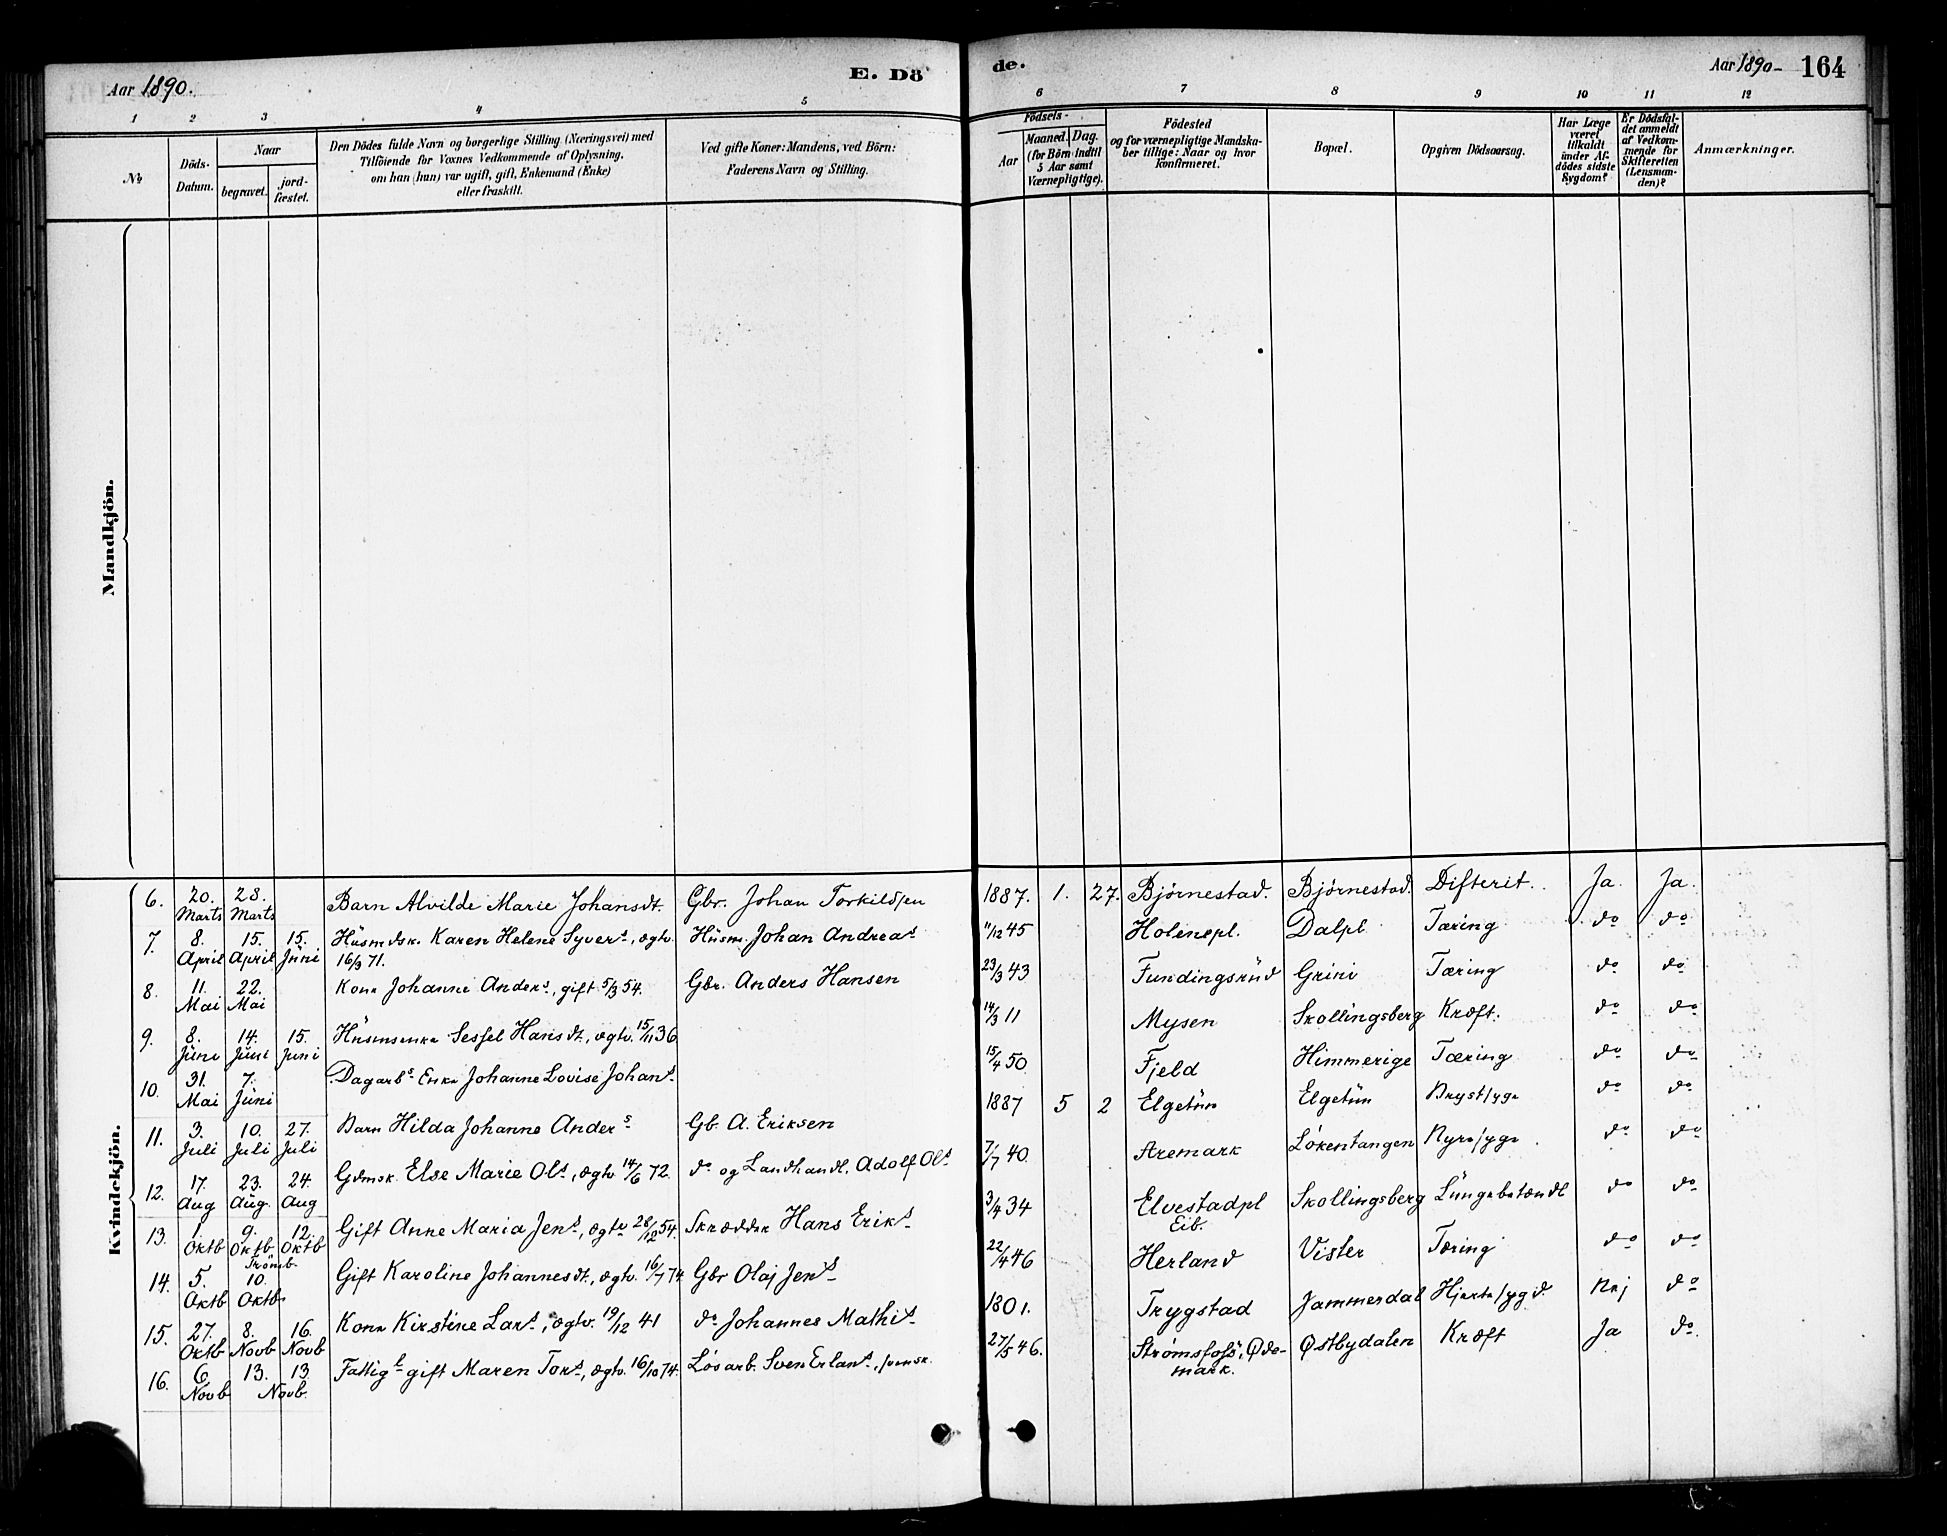 Aar 1890.
E. Dö
de.
Aar 1890-
164
1 2 3 4 5
6 7 8 9 10 11 12
№
Döds-
Datum.
Naar
begravet.
jord-
fæstet.
Den Dödes fulde Navn og borgerlige Stilling (Næringsvei) med
Tilföiende for Voxnes Vedkommende af Oplysning,
om han (hun) var ugift, gift, Enkemand (Enke)
eller fraskilt.
Ved gifte Koner: Mandens, ved Börn:
Faderens Navn og Stilling.
Födsels-
Aar
Maaned. Dag.
(for Börn indtil
5 Aar samt
Værnepligtige).
Födested
og for værnepligtige Mandska-
ber tillige: Naar og hvor
konfirmeret.
Bopæl.
Opgiven Dödsaarsag.
Har Læge
været
tilkaldt
under Af-
dödes sidste
Sygdom?
Er Dödsfal-
det anmeldt
af Vedkom-
mende for
Skifteretten
(Lensman-
den)?
Anmærkninger.
Mandkjön.
Kvindekjön.
6. 20. Marts 28. Marts Barn Alvilde Marie Johansdt. Gbr. Johan Torkildsen 1887. 1. 27. Bjørnestad. Bjørnestad. Difterit. Ja. Ja.
7. 8. April 15. April 15. Juni Husmdsk. Karen Helene Syvers, ægtv. 16/3 71. Husm. Johan Andreas 11/12 45 Holenepl. Dalpl. Tæring do do
8. 11. Mai 22. Mai Kone Johanne Anders, gift 5/3 54. Gbr. Anders Hansen 23/3 43 Fundingsrud Grini Tæring do do
9. 8. Juni 14. Juni 15. Juni Husmsenke Sessel Hansdt., ægtv. 15/11 36 14/3 11 Mysen Skollingsberg Kræft. do do
10. 31. Mai 7. Juni Dagarbs Enke Johanne Lovise Johans 15/4 50 Fjeld Himmerige Tæring do do
11. 3. Juli 10. Juli 27. Juli Barn Hilda Johanne Anders Gb. A. Eriksen 1887 5 2 Elgetun Elgetun Brystsyge do do
12. 17. Aug 23. Aug. 24. Aug Gdmsk. Else Marie Ols, ægtv. 14/6 72. do og Landhandl. Adolf Ols 7/7 40. Aremark Løkentangen Nyresyge. do do
13. 1. Oktb 9. Oktb. Trömb. 12. Oktb Gift Anne Maria Jens, ægtv 28/12 54. Skrædder Hans Eriks 3/4 34 Elvestadpl Eib. Skollingsberg Lungebetændl do do
14. 5. Oktb 10. Oktb Gift Karoline Johannesdt., ægtv. 16/7 74. Gbr Olaj Jens 22/4 46 Herland Vister Tæring do do
15. 27. Oktb 8. Novb 16. Novb Kone Kirstine Lars, ægtv. 19/12 41 do Johannes Mathis 1801. Trygstad Jammerdal Hjertesygd. Nej do
16. 6. Novb 13. 13. Novb. Fattigl gift Maren Tors, ægtv. 16/10 74. Løsarb. Sven Erlans, svensk. 27/5 46. Strømsfoss, Øde-
mark. Østbydalen Kræft Ja do.